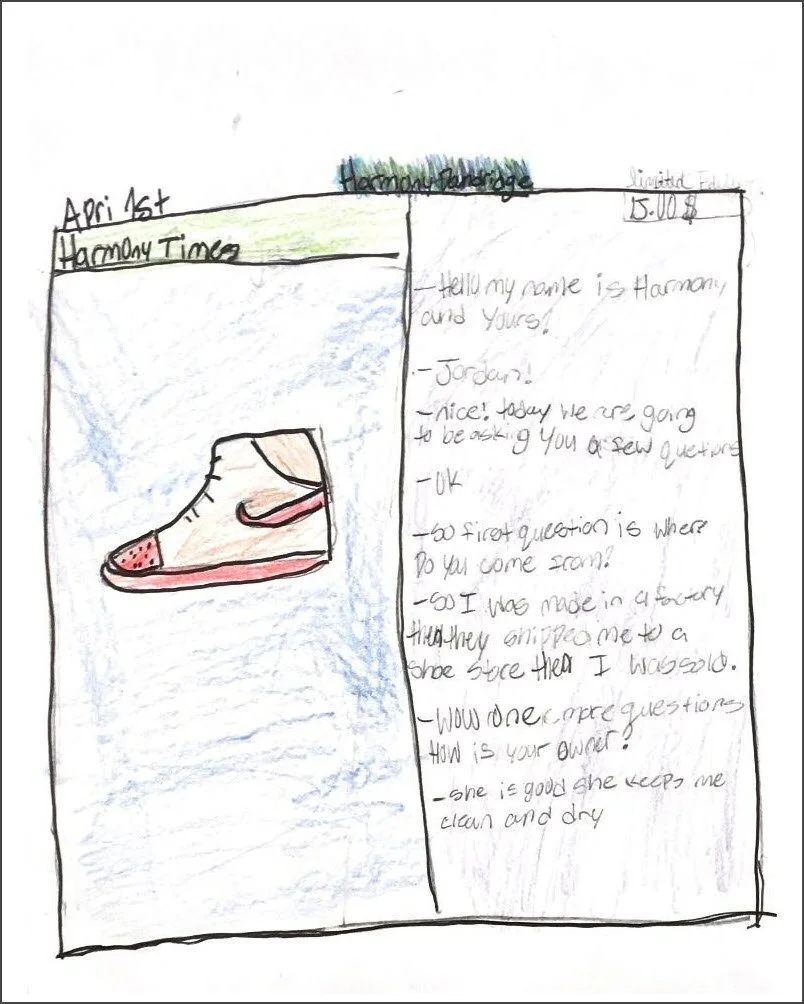 Harmony Dandridge
limited Edition
Apri 1st
15.00 $
Harmony Times
-Hello my name is Harmony
and Yours!
-Jordan!
-nice! today we are going
to be asking You a few quetions
-OK
-so first question is where
Do You come from?
-so I was made in a factory
then they shipped me to a
shoe store then I was sold.
-Wow one more questions
How is your owner?
-she is good she keeps me
clean and dry